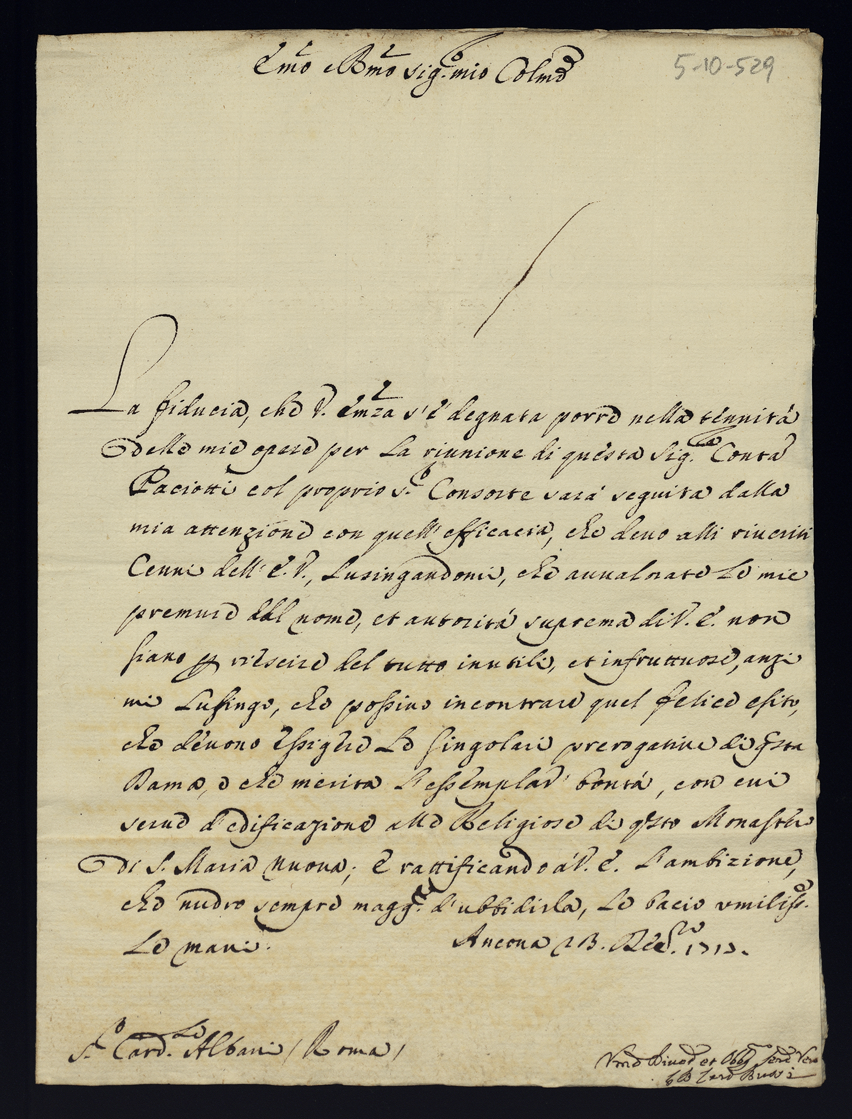 Emo e Rmo Sig.r mio Colmo
5-10-529
La fiducia, che V. Emza s'è degnata porre nella tennità
delle mie opere per la riunione di questa Sig.ra Conta
Paciotti col proprio S.r Consorte sarà seguita dalla
mia attenzione con quell'efficacia, che devo alli riveriti
Cenni dell'E.V., Lusingandomi, che avvalorate le mie
premure dal nome, et autorità suprema di V. E. non
siano p riescire del tutto inutili, et infruttuose, anzi
mi Lusingo, che possino incontrare quel felice esito,
che devono essigere le singolari prerogative di qsta
Dama, e che merita l'essemplar' bontà, con cui
serve d'edificazione alle Religiose di qsto Monastero
di S. Maria nuova; E rattificando à V. E. L'ambizione,
che nudro sempre magg.re d'ubbidirla, le bacio umiliss.e
Le mani. Ancona 23. 1717.
S.r Card.le Albani / Roma /
et Obbg Serv Vero
Card Bussi